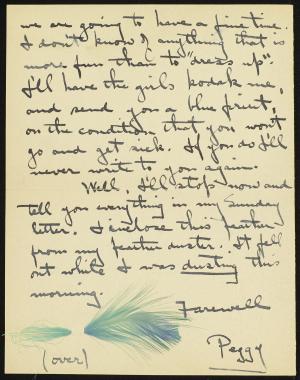 we are going to have a fine time.
I don't know of anything that is
more fun than to "dress up".
I'll have the girls kodak me,
and send you a blue print,
on the condition that you won't
go and get sick. If you do I'll
never write to you again.
Well, I'll stop now and
tell you everything in my Sunday
letter. I enclose this feather
from my feather duster. It fell
out while I was dusting this
morning.
Farewell
Peggy
(over)